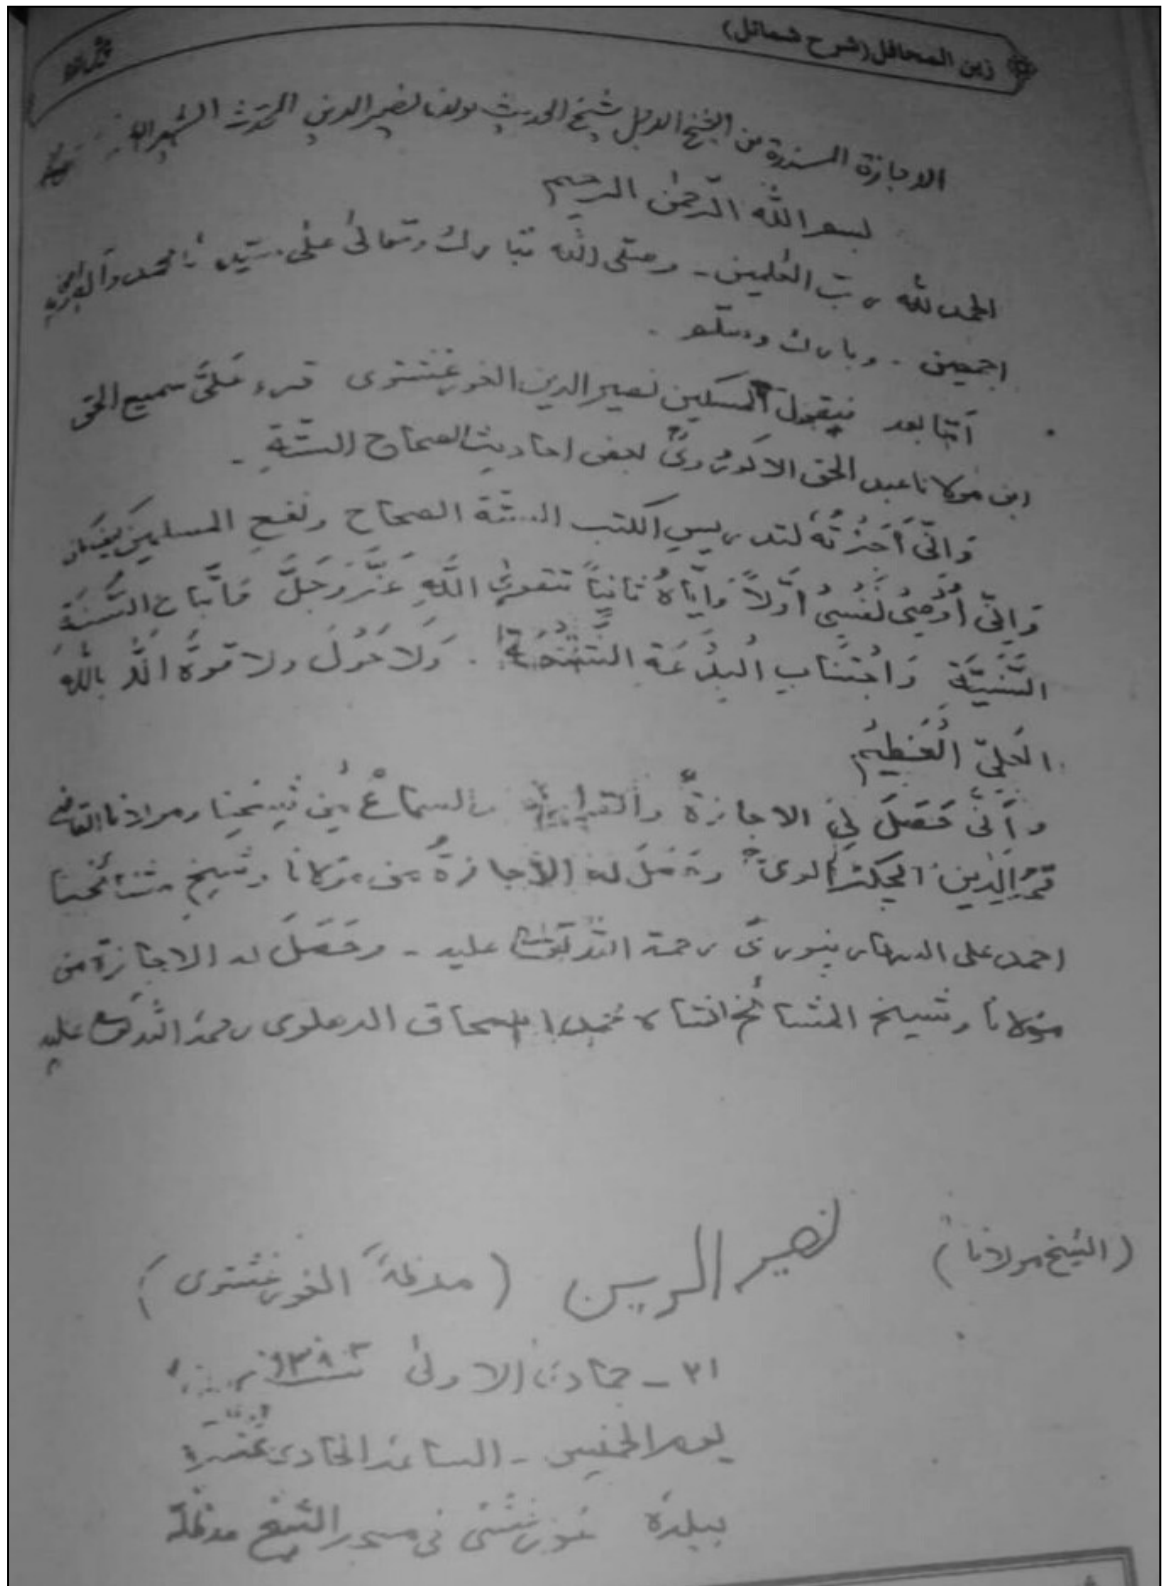 زين المحافل (شرح شمائل)
الاجازة المسندة من الشيخ الاجل شيخ الحديث مولانا نصير الدين المحدث الشهير
بسم الله الرحمٰن الرحيم
الحمد لله رب العٰلمين ـ وصلى الله تبارك وتعالىٰ علىٰ سيدنا محمد وآله
اجمعين ـ وبارك وسلم ـ
أمّا بعد فيقول المسكين نصير الدين الغورغشتوى قرء عَلَىَّ سميع الحق
ابن مولانا عبد الحق الاكوروىؒ بعض احاديث الصحاح الستّةِ ـ
وَانّى أَجَزْتُهٗ لتدريسِ الكتب الستّة الصحاح ونفعِ المسلمين
وَاِنّى أُوْصِىْ نَفْسِىْ أوّلاً وَايّاهُ ثانياً بتقوىٰ اللهِ عَزَّ وَجَلَّ وَاتّباعِ السُّنَّةِ
السَّنِيَّةِ وَاجْتنابِ البِدْعَةِ ـ وَلا حَوْلَ ولا قوةَ الّا باللهِ
العَلِىِّ الْعَظِيْمِ
وَأنّى حَصَلَ لِىْ الاجازةُ والقراءة والسماعُ مِن شيخِنا ومولانا القاضى
قمر الدين الچكڑالوىؒ وحصل له الأجازةُ من مولانا وشيخ مشائخنا
احمد على السهارنپورى رحمة الله تعالىٰ عليه ـ وحَصَلَ له الاجازة من
مولانا وشيخ المشائخ الشاه محمد اسحاق الدهلوى رحمة الله تعالىٰ عليه
(الشيخ مولانا) نصير الدين (مدظلهٗ الغورغشتوى)
٢١ ـ جمادى الاولىٰ ١٣٨٣
يوم الخميس ـ الساعة الحادى عشرة
ببلدة غورغشتى فى مسجد الشيخ مدظلهٗ